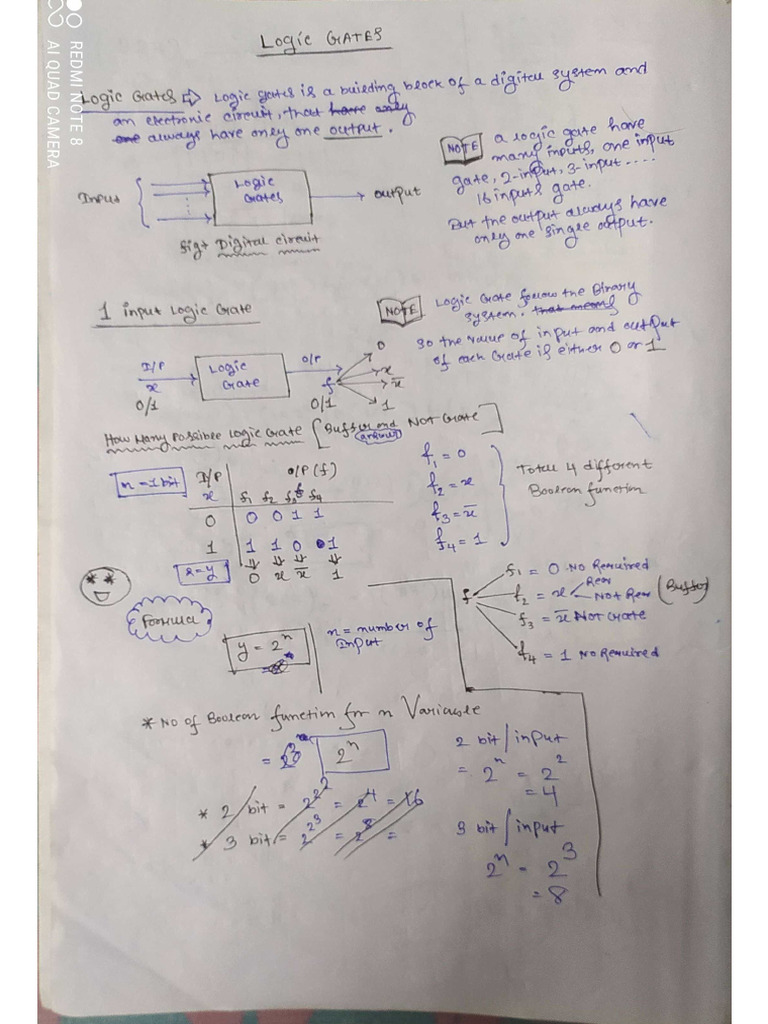 REDMI NOTE 8
AI QUAD CAMERA
Logic GATES
Logic Gates ⇨ Logic gates is a building block of a digital system and
an electronic circuit, that have only
one always have only one output.
NOTE a logic gate have
many inputs, one input
gate, 2-input, 3-input....
16 inputs gate.
But the output always have
only one single output.
Input
Logic
Gates
output
fig+ Digital circuit
1 input Logic Gate
NOTE Logic Gate follow the Binary
system. that means
so the value of input and output
of each Gate is either 0 or 1
I/P
x
0/1
Logic
Gate
O/P
f
0/1
0
x
x̅
1
How Many Possible Logic Gate [Buffer and NOT Gate]
n = 1 bit
I/P O/P (f)
x f1 f2 f3 f4
0 0 0 1 1
1 1 1 0 1
2 = y
0 x x̅ 1
f1 = 0
f2 = x
f3 = x̅
f4 = 1
Total 4 different
Boolean function
f
f1 = 0 No Required
f2 = x
Not Req (Buffer)
f3 = x̅ Not Gate
f4 = 1 No Required
Formula
y = 2^n
n = number of
Input
* No of Boolean function for n Variable
= 2^n
* 2 bit = 2^2^2 = 2^4 = 16
* 3 bit = 2^2^3 = 2^8 =
2 bit / input
= 2^n = 2^2
= 4
3 bit / input
2^n = 2^3
= 8